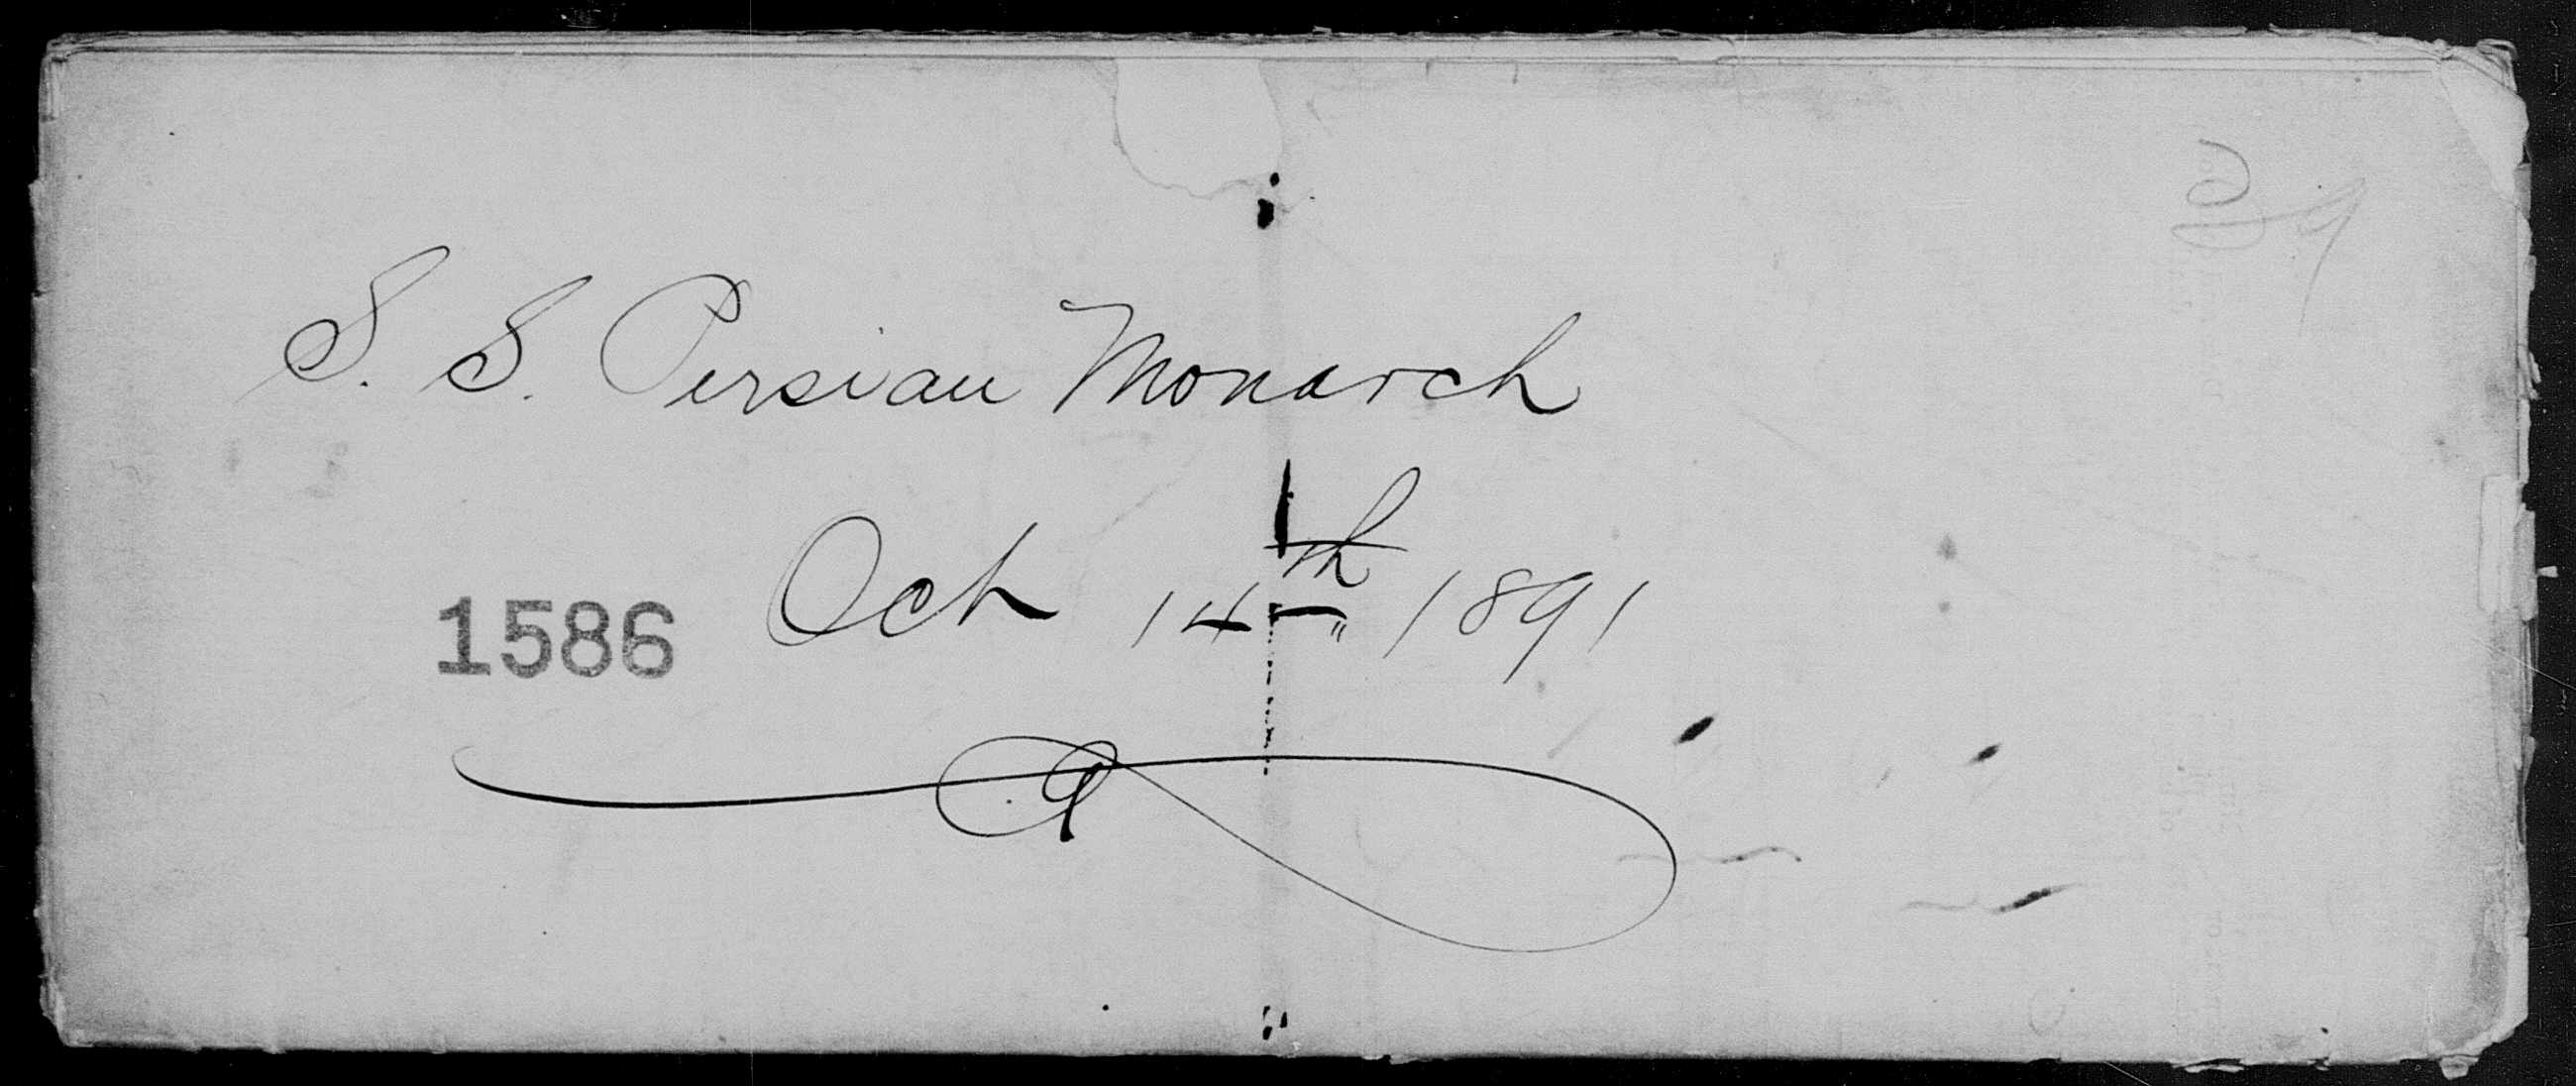 S. S. Persian Monarch
Oct 14th 1891
1586
9